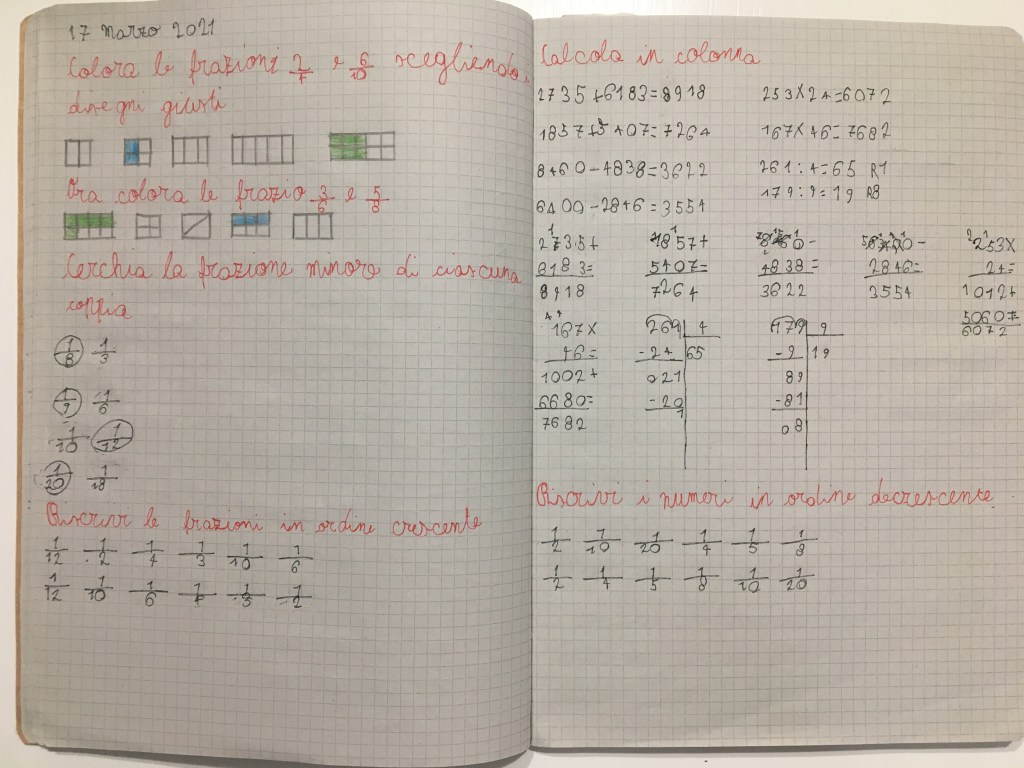 17 Marzo 2021
Colora le frazioni 2/4 e 6/10 scegliendo
disegni giusti
Ora colora le frazio 3/6 e 5/8
Cerchia la frazione minore di ciascuna
coppia
1/8 1/3
1/9 1/6
1/10 1/12
1/20 1/18
Riscrivi le frazioni in ordine crescente
1/12 1/2 1/4 1/3 1/10 1/6
1/12 1/10 1/6 1/4 1/3 1/2
Calcola in colonna
2735+6183=8918 253×24=6072
1857+5407=7264 167×46=7682
8460-4838=3622 261:4=65 R1
179:9=19 R8
6400-2846=3554
2735+ 1857+ 8460- 6400- 253×
6183= 5407= 4838= 2846= 24=
8918 7264 3622 3554 1012+
5060=
6072
167× 269 4 179 9
46= -24 65 -9 19
1002+ 021 89
6680= -20 -81
7682 1 08
Riscrivi i numeri in ordine decrescente
1/2 1/10 1/20 1/4 1/5 1/8
1/2 1/4 1/5 1/8 1/10 1/20